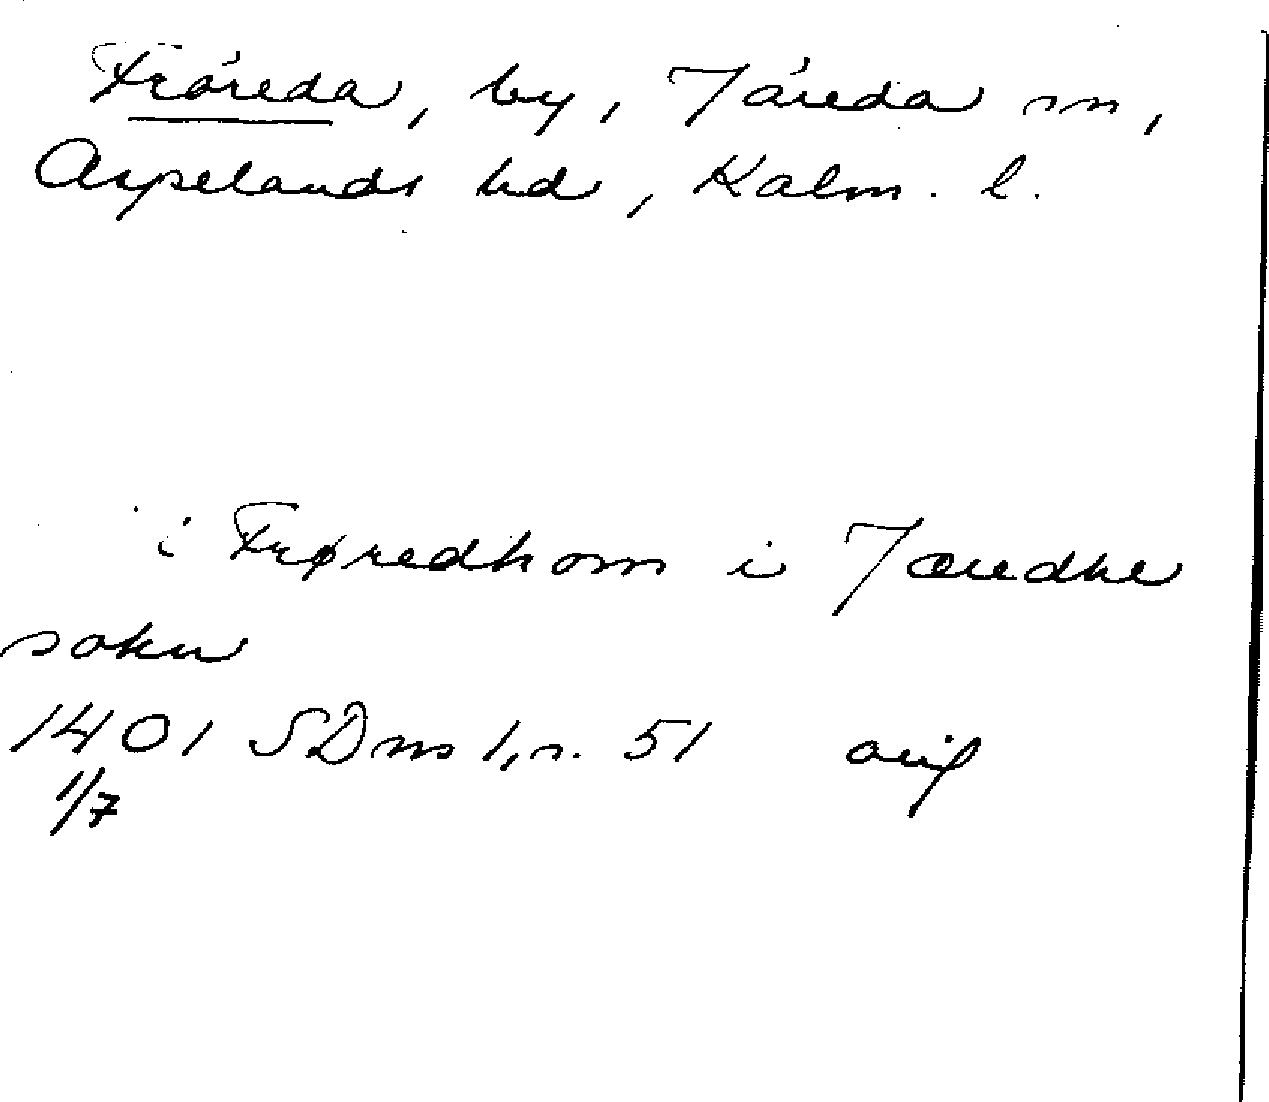 Fröreda, by, Järeda sn,
Aspelands hd, Kalm. l.
i Frøredhom i Jæredhe
sokn
1401 SDns 1, s. 51 orig
1/7